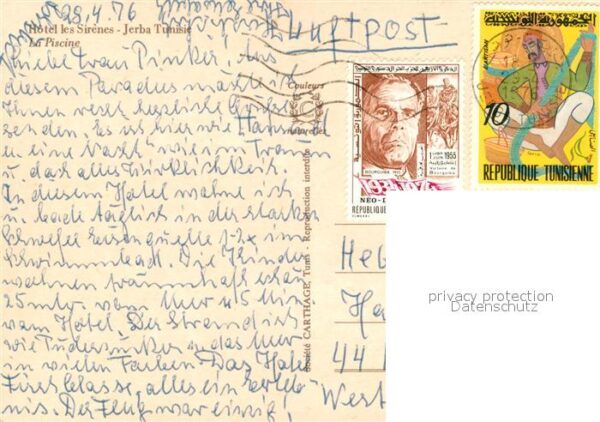 28.4.76
Hôtel les Sirènes - Jerba Tunisie
La Piscine
Luftpost
Liebe Frau Pinker, aus
diesem Paradies möchte ich
Ihnen recht herzliche Grüße
senden. Es ist hier wie
in Nacht, wie im Traum
u. doch alles Wirklichkeit.
In diesem Hotel wohne ich
u. bade täglich in der starken
Schwefel 1-2 x im
Schwimmbad. Die Kinder
wohnen traumhaft
25 mtr. vom Meer u 5 Min
vom Hotel. Der Strand ist
wie Puderzucker u das Meer
in vielen Farben. Das Hotel
First classe, alles ein Erleb-
nis. Der Flug war einzig,
Couleurs
naturelles
Société CARTHAGE, Tunis Reproduction interdite
1955
BOURGUIBA
Victoire de
Bourguiba
1934-1974
NEO-D
RÉPUBLIQUE
الجمهورية التونسية
10
REPUBLIQUE TUNISIENNE
He
Ha
44
West
privacy protection
Datenschutz